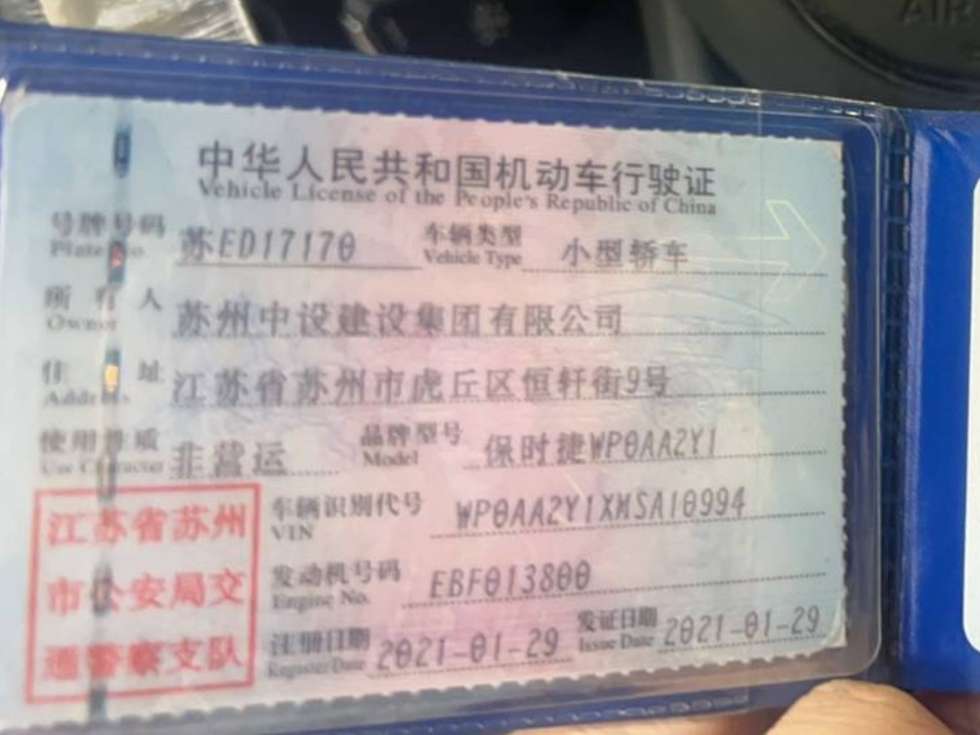 AIR
中华人民共和国机动车行驶证
Vehicle License of the People's Republic of China
号牌号码 苏ED17170 车辆类型 小型轿车
Plate No. Vehicle Type
所有人 苏州中设建设集团有限公司
Owner
住址 江苏省苏州市虎丘区恒轩街9号
Address
使用性质 非营运 品牌型号 保时捷WP0AA2Y1
Use Character Model
车辆识别代号 WP0AA2Y1XMSA10994
VIN
发动机号码 EBF013800
Engine No.
注册日期 2021-01-29 发证日期 2021-01-29
Register Date Issue Date
江苏省苏州
市公安局交
通警察支队